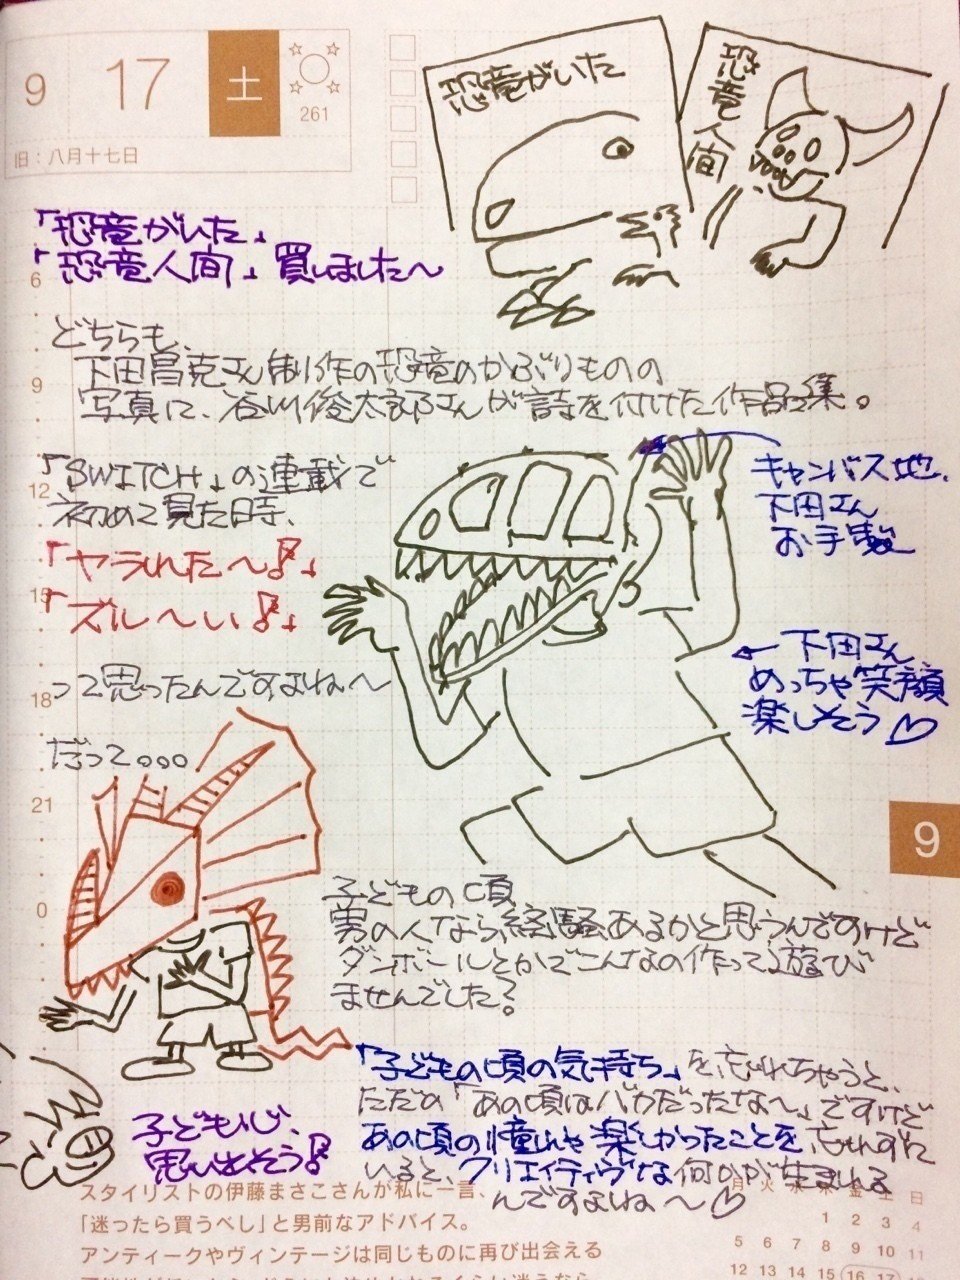 9 17 土
261
旧：八月十七日
恐竜がいた
恐竜人間
「恐竜がいた」
「恐竜人間」買いました〜
6
どちらも、
下田昌克さん制作の恐竜のかぶりものの
9
写真に、谷川俊太郎さんが詩を付けた作品集。
「SWITCH」の連載で
12
初めて見た時、
キャンバス地、
下田さん
お手製
「ヤラれた〜!」
15
「ズル〜い!」
←下田さん
めっちゃ笑顔
楽しそう♡
って思ったんですよね〜
18
だって。。。
21
9
0
子どもの頃
男の人なら経験あるかと思うんですけど
ダンボールとかでこんなの作って遊び
ませんでした?
「子どもの頃の気持ち」を忘れちゃうと、
ただの「あの頃はバカだったな〜」ですけど
あの頃の憧れや楽しかったことを、忘れずに
いると、クリエイティヴな何かが生まれる
んですよね〜♡
子ども心、
思い出そう!
スタイリストの伊藤まさこさんが私に一言、
「迷ったら買うべし」と男前なアドバイス。
アンティークやヴィンテージは同じものに再び出会える
月 火 水 木 金 土 日
1 2 3 4
5 6 7 8 9 10 11
12 13 14 15 16 17